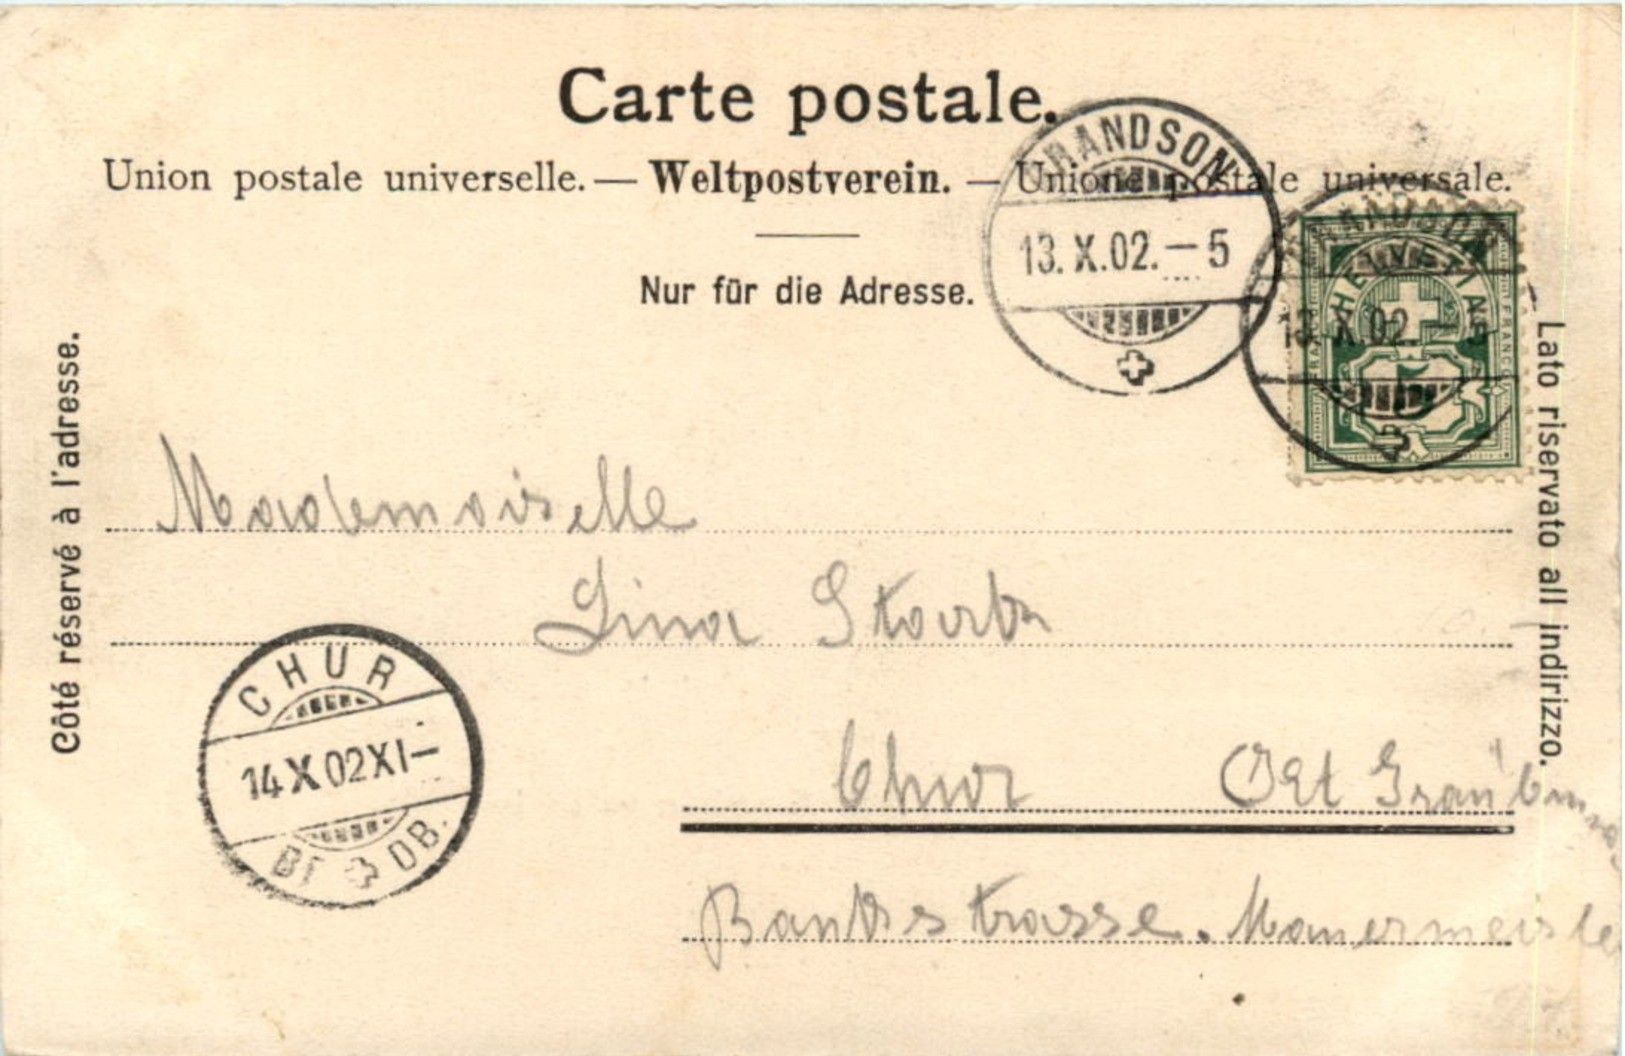 Carte postale.
Union postale universelle. — Weltpostverein. — Unione postale universale.
Nur für die Adresse.
GRANDSON
13. X. 02. — 5
GRANDSON
13. X. 02. — 5
HELVETIA
FRANCO
5
Côté réservé à l'adresse.
Lato riservato all indirizzo.
Mademoiselle
Lina
CHUR
14 X 02 XI —
BF DB.
Chur
Banksstrasse. Mauermeister